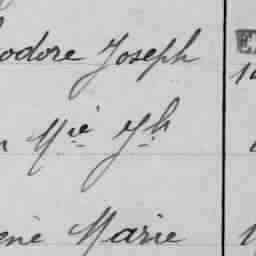 odore Joseph
Mie Jh
ené Marie